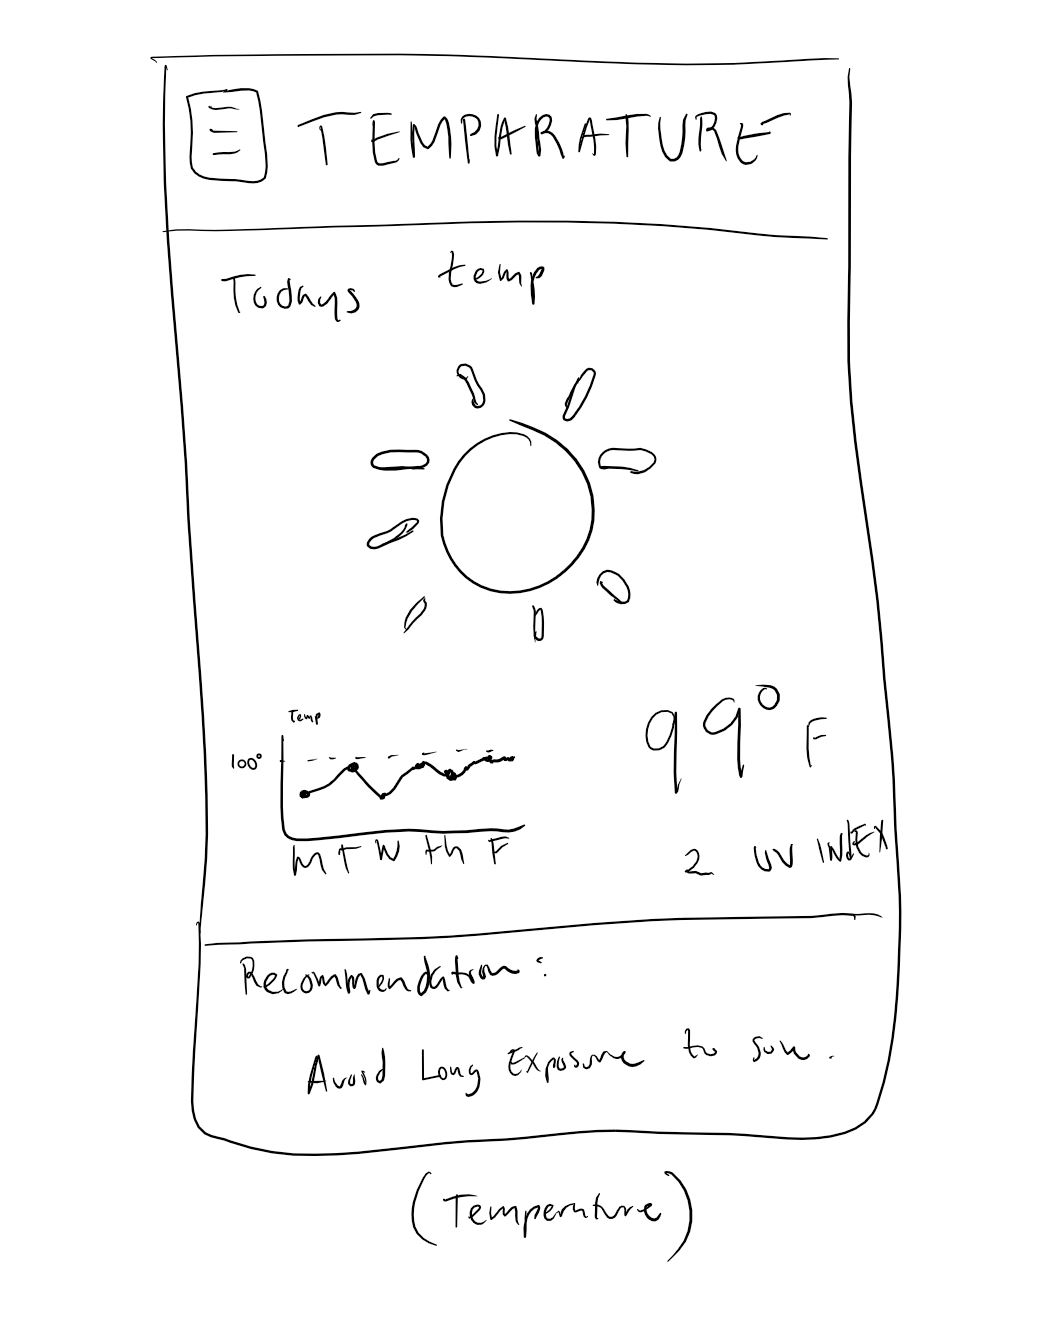 TEMPARATURE
Todays temp
Temp
100°
99° F
M T W th F
2 UV INDEX
Recommendation:
Avoid Long Exposure to sun.
(Temperature)